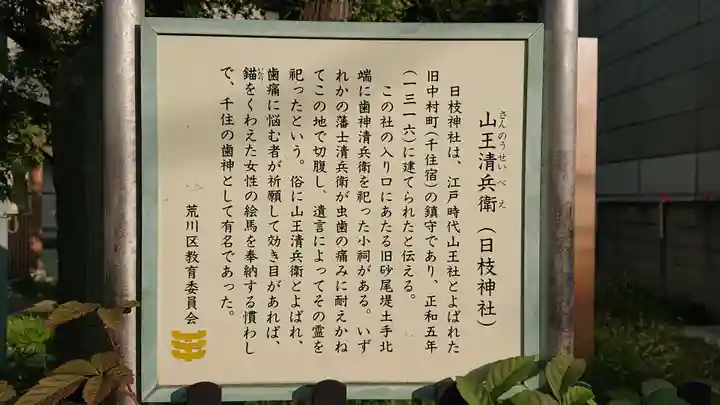 さんのうせいべえ
山王清兵衛(日枝神社)
日枝神社は、江戸時代山王社とよばれた
旧中村町(千住宿)の鎮守であり、正和五年
(一三一六)に建てられたと伝える。
この社の入り口にあたる旧砂尾堤土手北
端に歯神清兵衛を祀った小祠がある。いず
れかの藩士清兵衛が虫歯の痛みに耐えかね
てこの地で切腹し、遺言によってその霊を
祀ったという。俗に山王清兵衛とよばれ、
歯痛に悩む者が祈願して効き目があれば、
錨をくわえた女性の絵馬を奉納する慣わし
で、千住の歯神として有名であった。
荒川区教育委員会